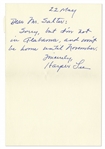 22 May
Dear Mr. Salter:
Sorry, but I'm not
in Alabama, and won't
be home until November.
Sincerely,
Harper Lee